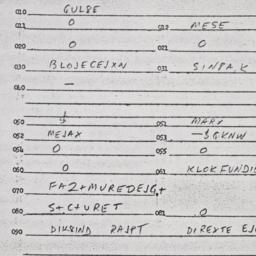 010 GULBE
011 0 012 MESE
020 0 021 0
030 BLOJECEJXN 031 SINPAK
040 —
050 051 MARX
052 MEJAX 053
054 0 055 0
060 0 061 KLOKFUNDI
070 FAZ+MUREDEJG,+
080 S+C+URET 081 0
090 DIKSIND PAJPT DIREXTE EJ